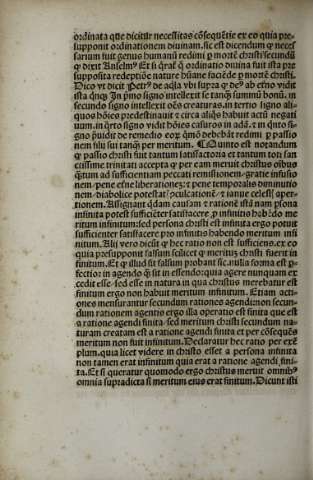 ordinata que dicitur necessitas cōsequētie ex eo quia pre-
supponit ordinationem diuinam. sic est dicendum ꝙ neces
sarium fuit genus humanū redimi ꝑ mortē christi secundū
ꝙ dixit Anselmꝰ Et si q̄rat̄ ꝙ ordinatio diuina fuit ista pre
supposita redēptiōe nature hūane faciēde ꝑ mortē christi.
Dico vt dicit
ista Jn pmo signo intellexit se tanꝙ summū bonū. in
secundo signo intellexit oēs creaturas. in tertio signo ali-
quos hōies predestinauit ⁊ circa aliq̄s habuit actū negati
uum. in q̄rto signo vidit hōies casuros in adā. ⁊ in q̄nto si-
gno p̄uidit de remedio eoꝝ q̄mō debebāt redimi ꝑ passio
nem filij sui tanꝙ per meritum. Quinto est notandum
ꝙ passio christi fuit tantum satisfactoria et tantum toti san
ctissime trinitati accepta ꝙ per eam meruit christus oībus
q̄ntum ad sufficientiam peccati remissionem/gratie infusio
nem/pene et̄ne liberationeȝ: ⁊ pene temporalis diminutio
nem/diabolice potestatꝭ ꝯculcationē ⁊ ianue celestꝭ aperti
onem. Assignant q̄dam causam ⁊ rationē istā nam ꝑsona
infinita potest sufficiēter satisfacere ꝑ infinitis habēdo me
ritum infinitum: sed persona christi est infinita ergo potuit
sufficienter satisfacere pro infinitis habendo meritum infi
nitum. Alij vero dicūt ꝙ hec ratio non est sufficiens. ex eo
quia presupponit falsum scilicet ꝙ meritū christi fuerit in
finitum. Et ꝙ illud sit falsum probant sic. nulla forma est ꝑ
fectior in agendo ꝙ sit in essendo: quia agere nunquam ex
cedit esse. sed esse in natura in qua christus merebatur est
finitum ergo non habuit meritum infinitum. Etiam acti
ones mensurantur secundum rationes agendi: non secun
dum rationem agentis ergo illa operatio est finita que est
a ratione agendi finita. sed meritum christi secundum na-
turam creatam est a ratione agendi finita et per cōsequēs
meritum non fuit infinitum. Declaratur hec ratio per exē
plum. quia licet videre in christo esset a persona infinita
non tamen erat infinitum quia erat a ratione agendi fini-
ta. Et si queratur quomodo ergo christus meruit omnibꝰ
omnia supradicta si meritum eius erat finitum. Dicunt isti